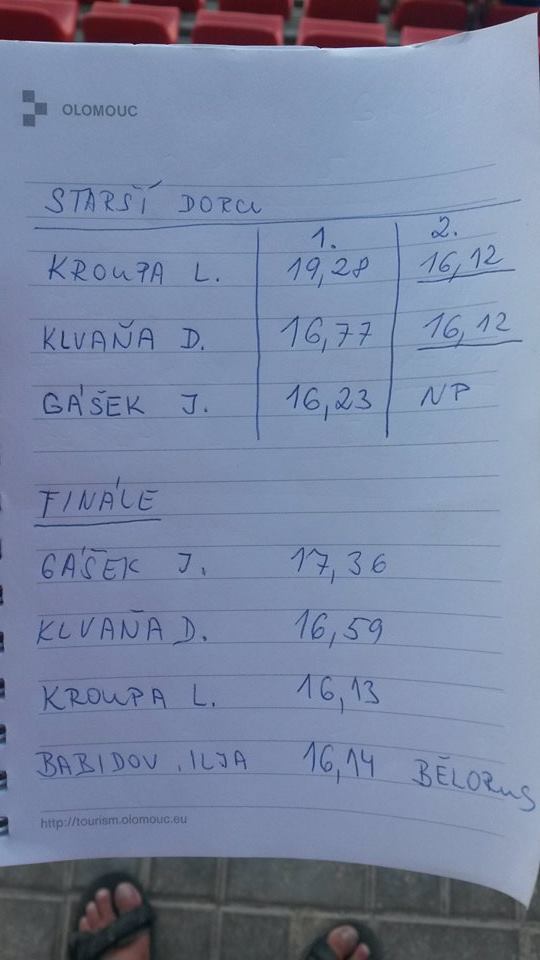 OLOMOUC
STARŠÍ DORCI
1. 2.
KROUPA L. 19,28 16,12
KLVAŇA D. 16,77 16,12
GÁŠEK J. 16,23 NP
FINÁLE
GÁŠEK J. 17,36
KLVAŇA D. 16,59
KROUPA L. 16,13
BABIDOV ILJA 16,14 BĚLORUS
http://tourism.olomouc.eu